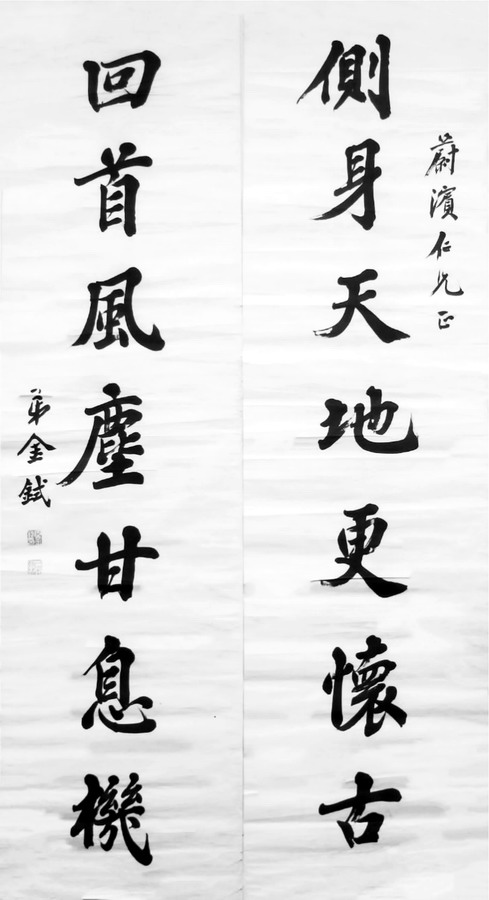 蔚濱仁兄正
側身天地更懷古
回首風塵甘息機
弟金鉽